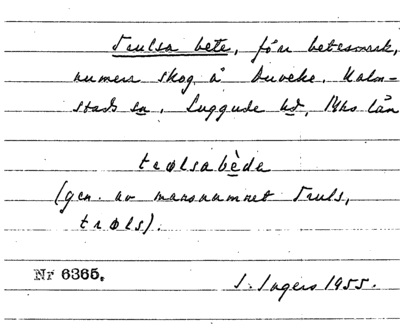 Trulsa bete, förr betesmark,
numera skog å Duveke. Katts-
lösa sn. Luggude hd, Mhs län
trølsabèda
(gen. av mansnamnet Truls,
trøls).
Nr 6365.
I. Ingers 1955.